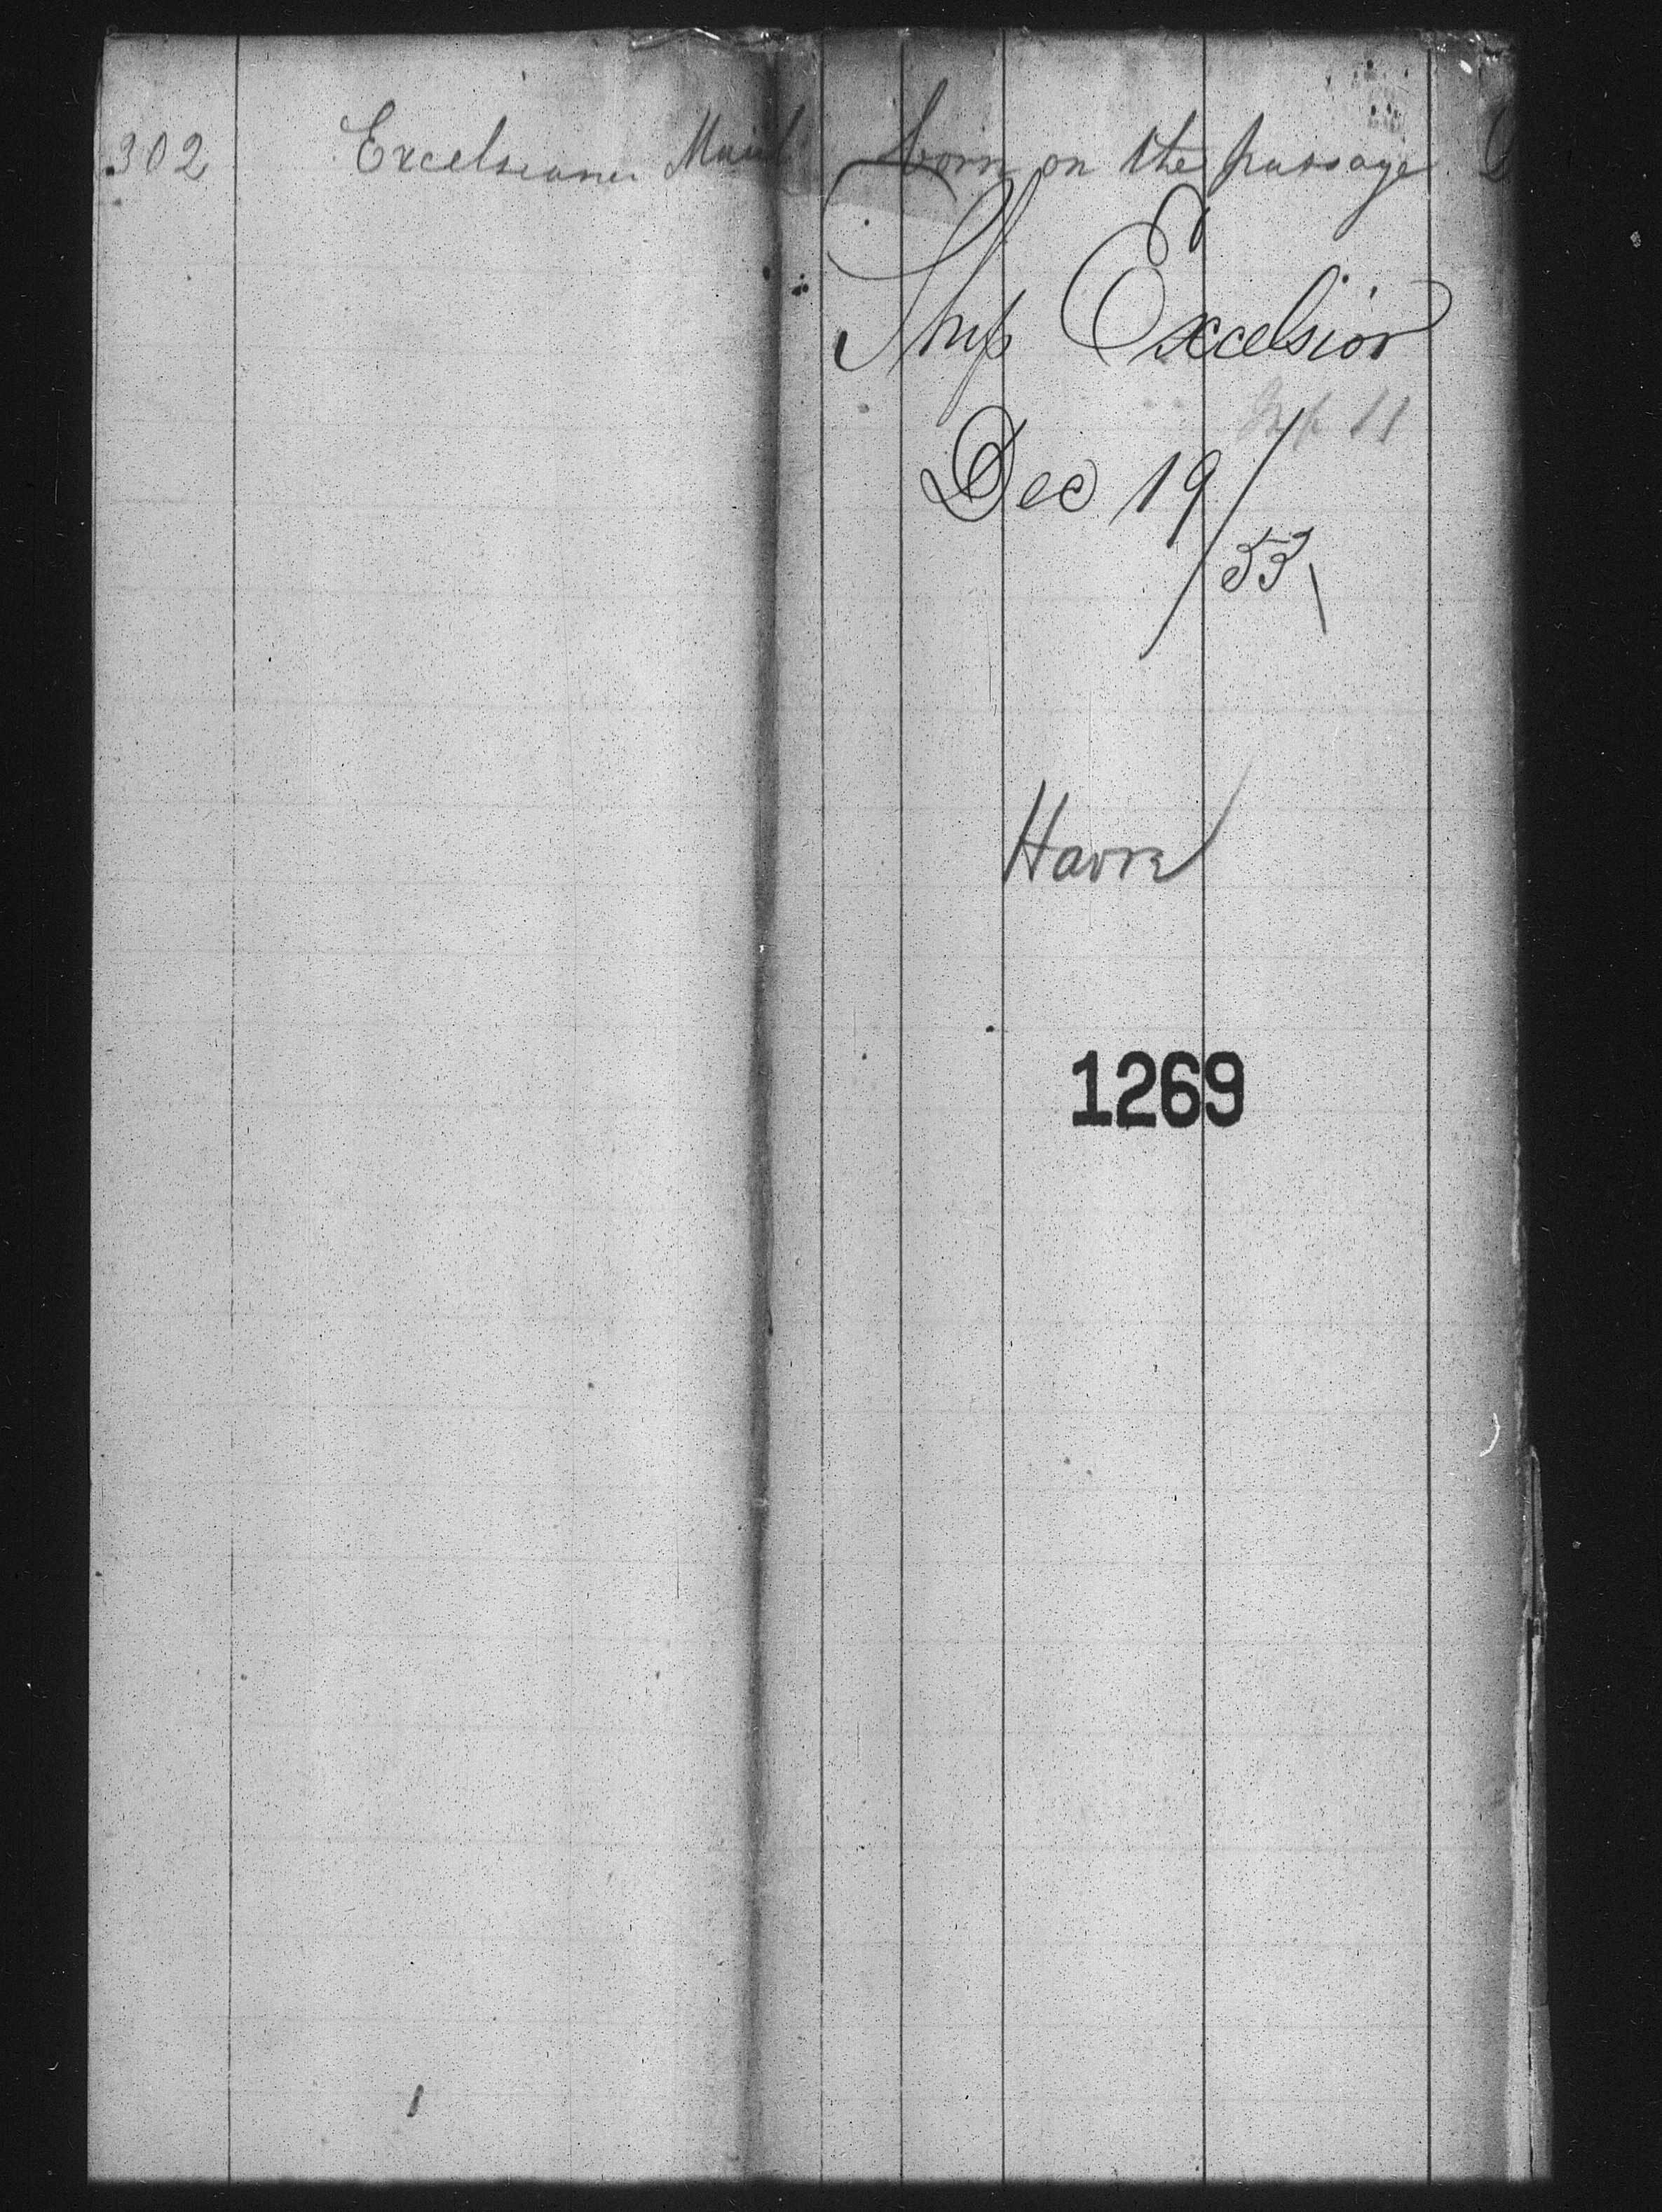 302 born on the passage
Ship Excelsior
Dec 19/53
Havre
1269